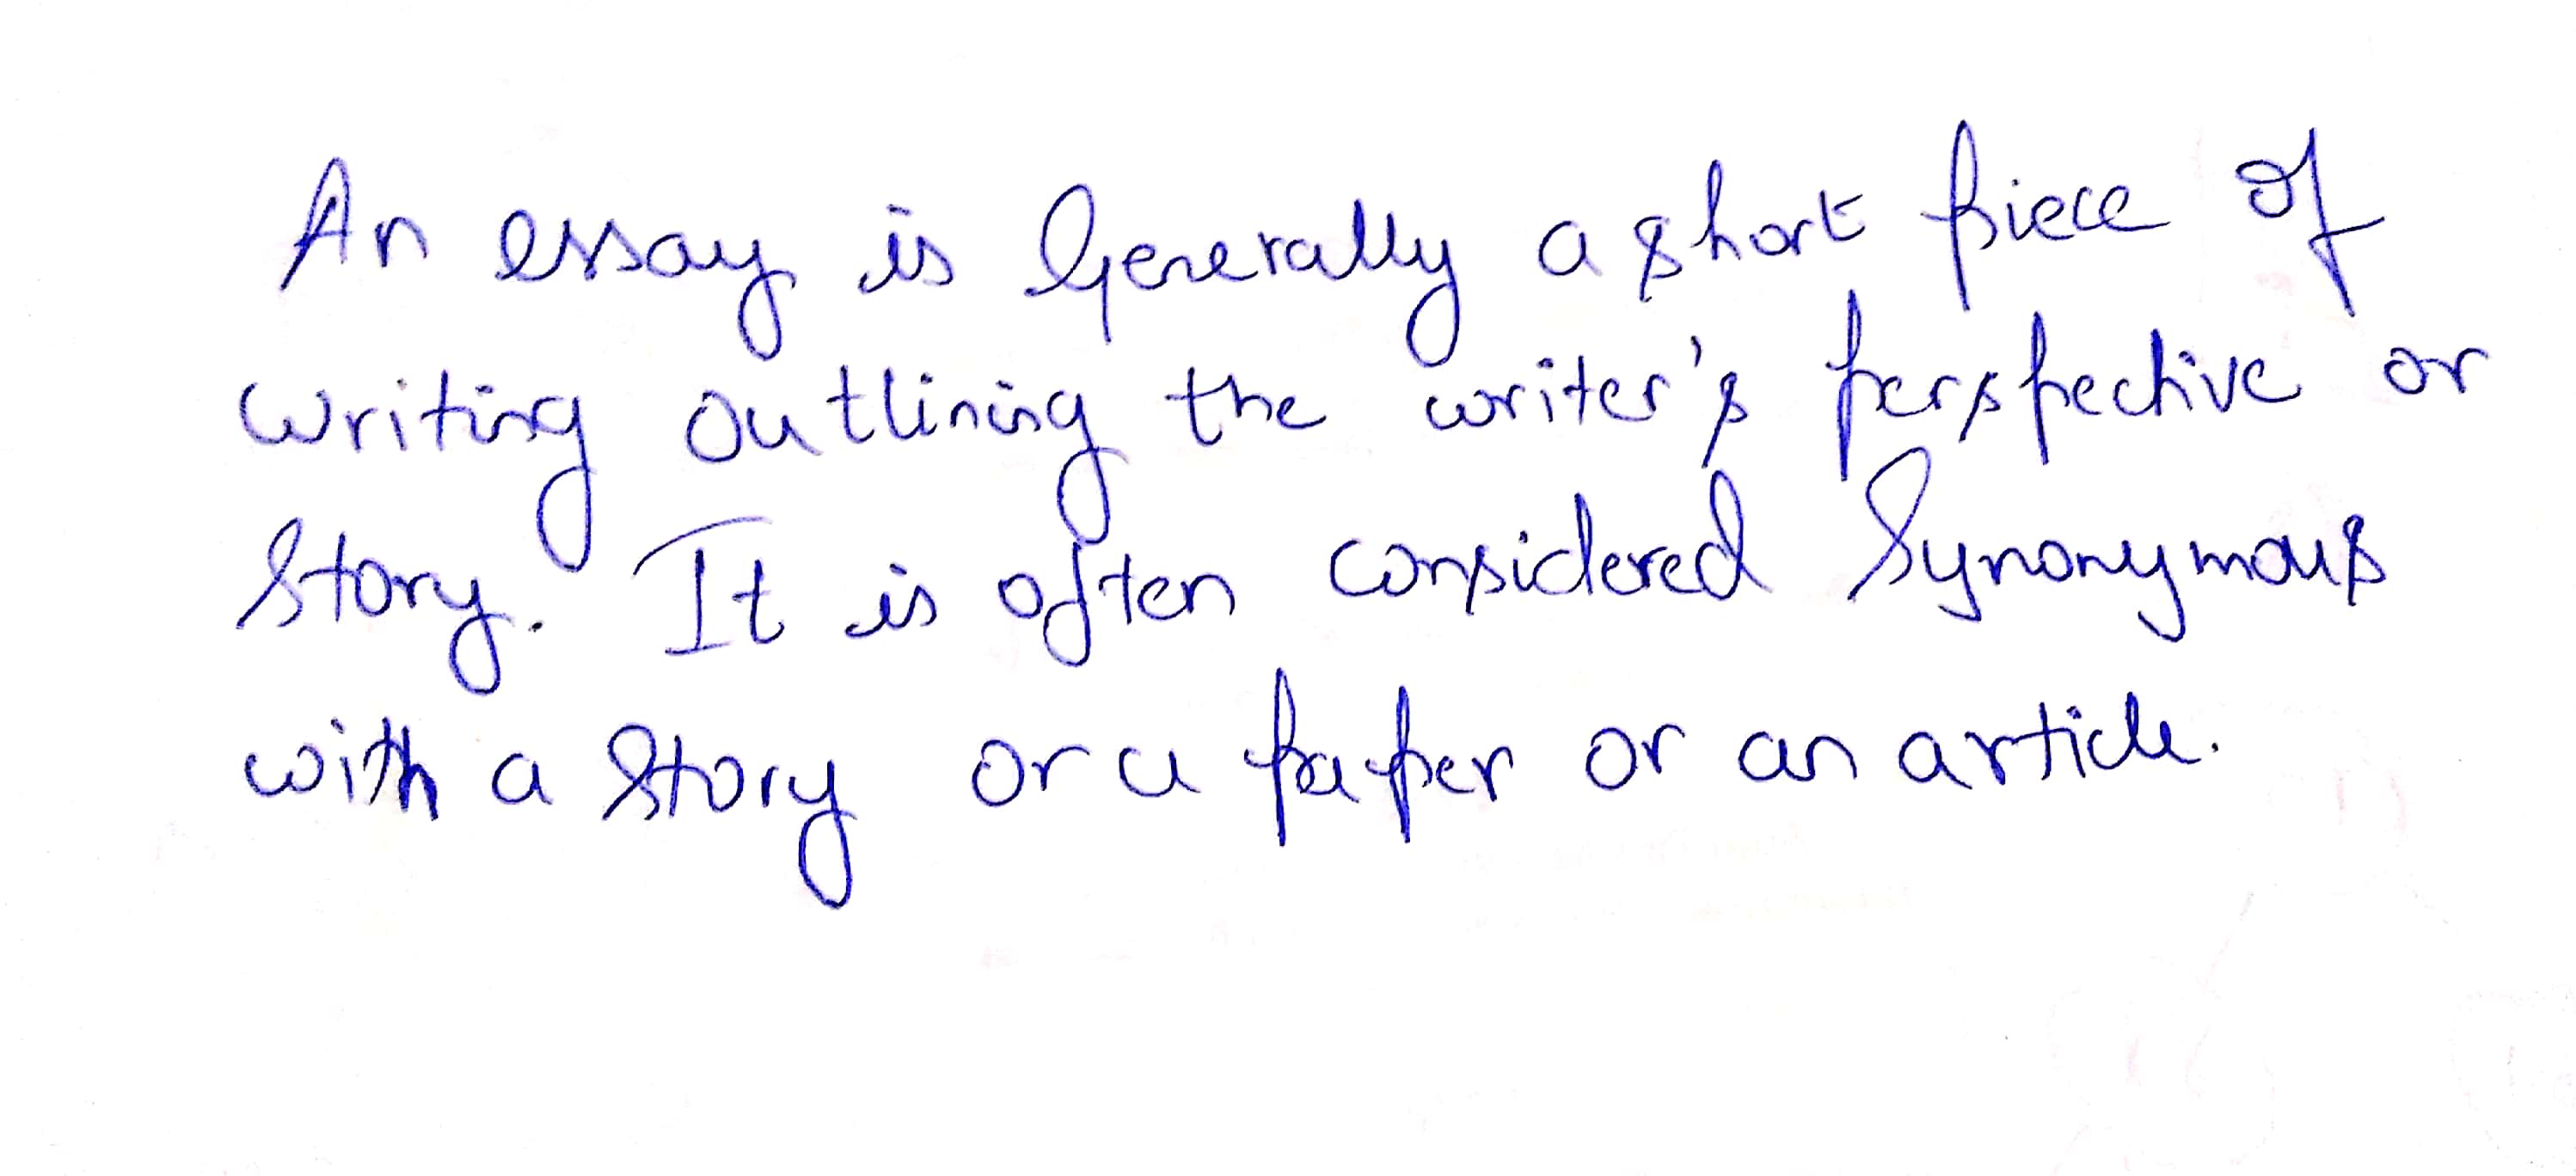 An essay is Generally a short piece of
writing outlining the writer's perspective or
Story. It is often considered Synonymous
with a Story or a paper or an article.